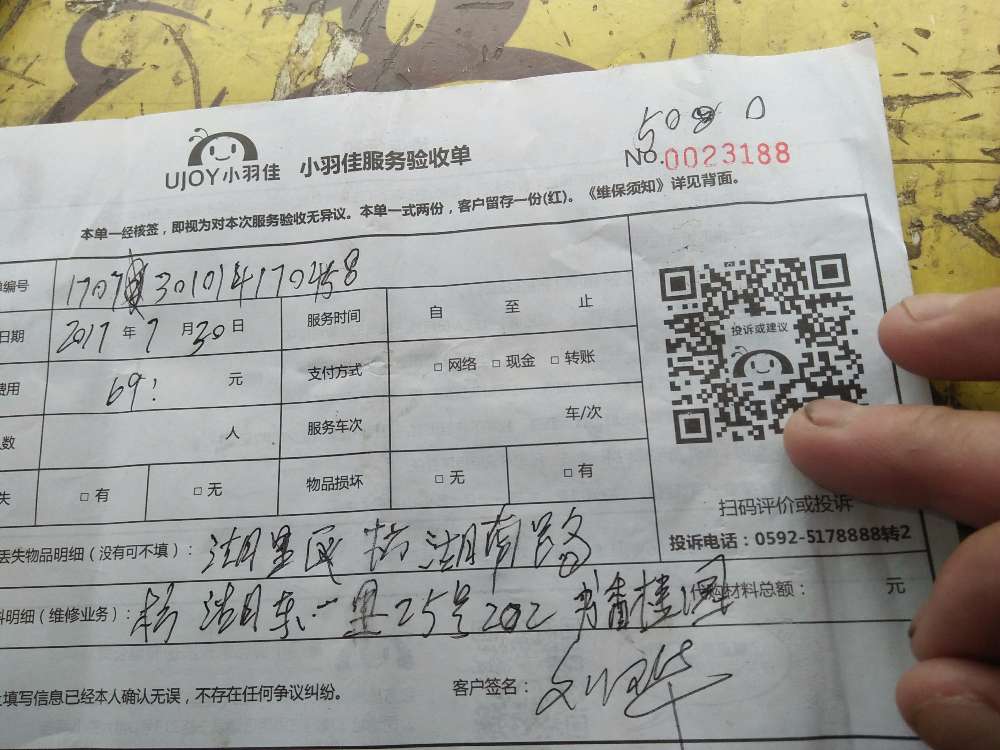 5080
UJOY小羽佳 小羽佳服务验收单 No.0023188
本单一经核签，即视为对本次服务验收无异议。本单一式两份，客户留存一份(红)。《维保须知》详见背面。
编号
日期 2017 年 7 月 30 日 服务时间 自 至 止
费用 69 元 支付方式 □ 网络 □ 现金 □ 转账
数 人 服务车次 车/次
失 □ 有 □ 无 物品损坏 □ 无 □ 有
投诉或建议
扫码评价或投诉
投诉电话：0592-5178888转2
丢失物品明细（没有可不填）： 湖里区 湖南路
料明细（维修业务）： 湖东一里25号202 代购材料总额： 元
填写信息已经本人确认无误，不存在任何争议纠纷。 客户签名：